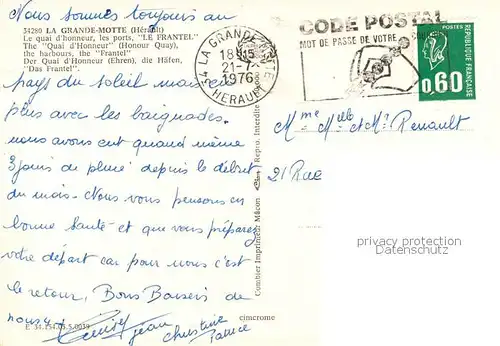 Nous sommes toujours au
34280 LA GRANDE-MOTTE (Hérault)
Le quai d'honneur, les ports, "LE FRANTEL"
The "Quai d'Honneur" (Honour Quay),
the harbours, the "Frantel"
Der Quai d'Honneur (Ehren), die Häfen,
"Das Frantel".
pays du soleil mais en
plus avec les baignades.
nous avons eut quand même
3 jours de pluie depuis le début
du mois. Nous vous pensons en
bonne santé et que vous préparez
votre départ car pour nous c'est
le retour, Bons Baisers de
nous 4
jean
christine
E 34.154.03.5.0039
cimcrome
Combier Imprimeur Mâcon
Repro. Interdite
34 LA GRANDE MOTTE
18H15
21-7
1976
HERAULT
CODE POSTAL
MOT DE PASSE DE VOTRE
POSTES
0,60
REPUBLIQUE FRANÇAISE
Mme Melle et Mr Renault
21 Rue
privacy protection
datenschutz